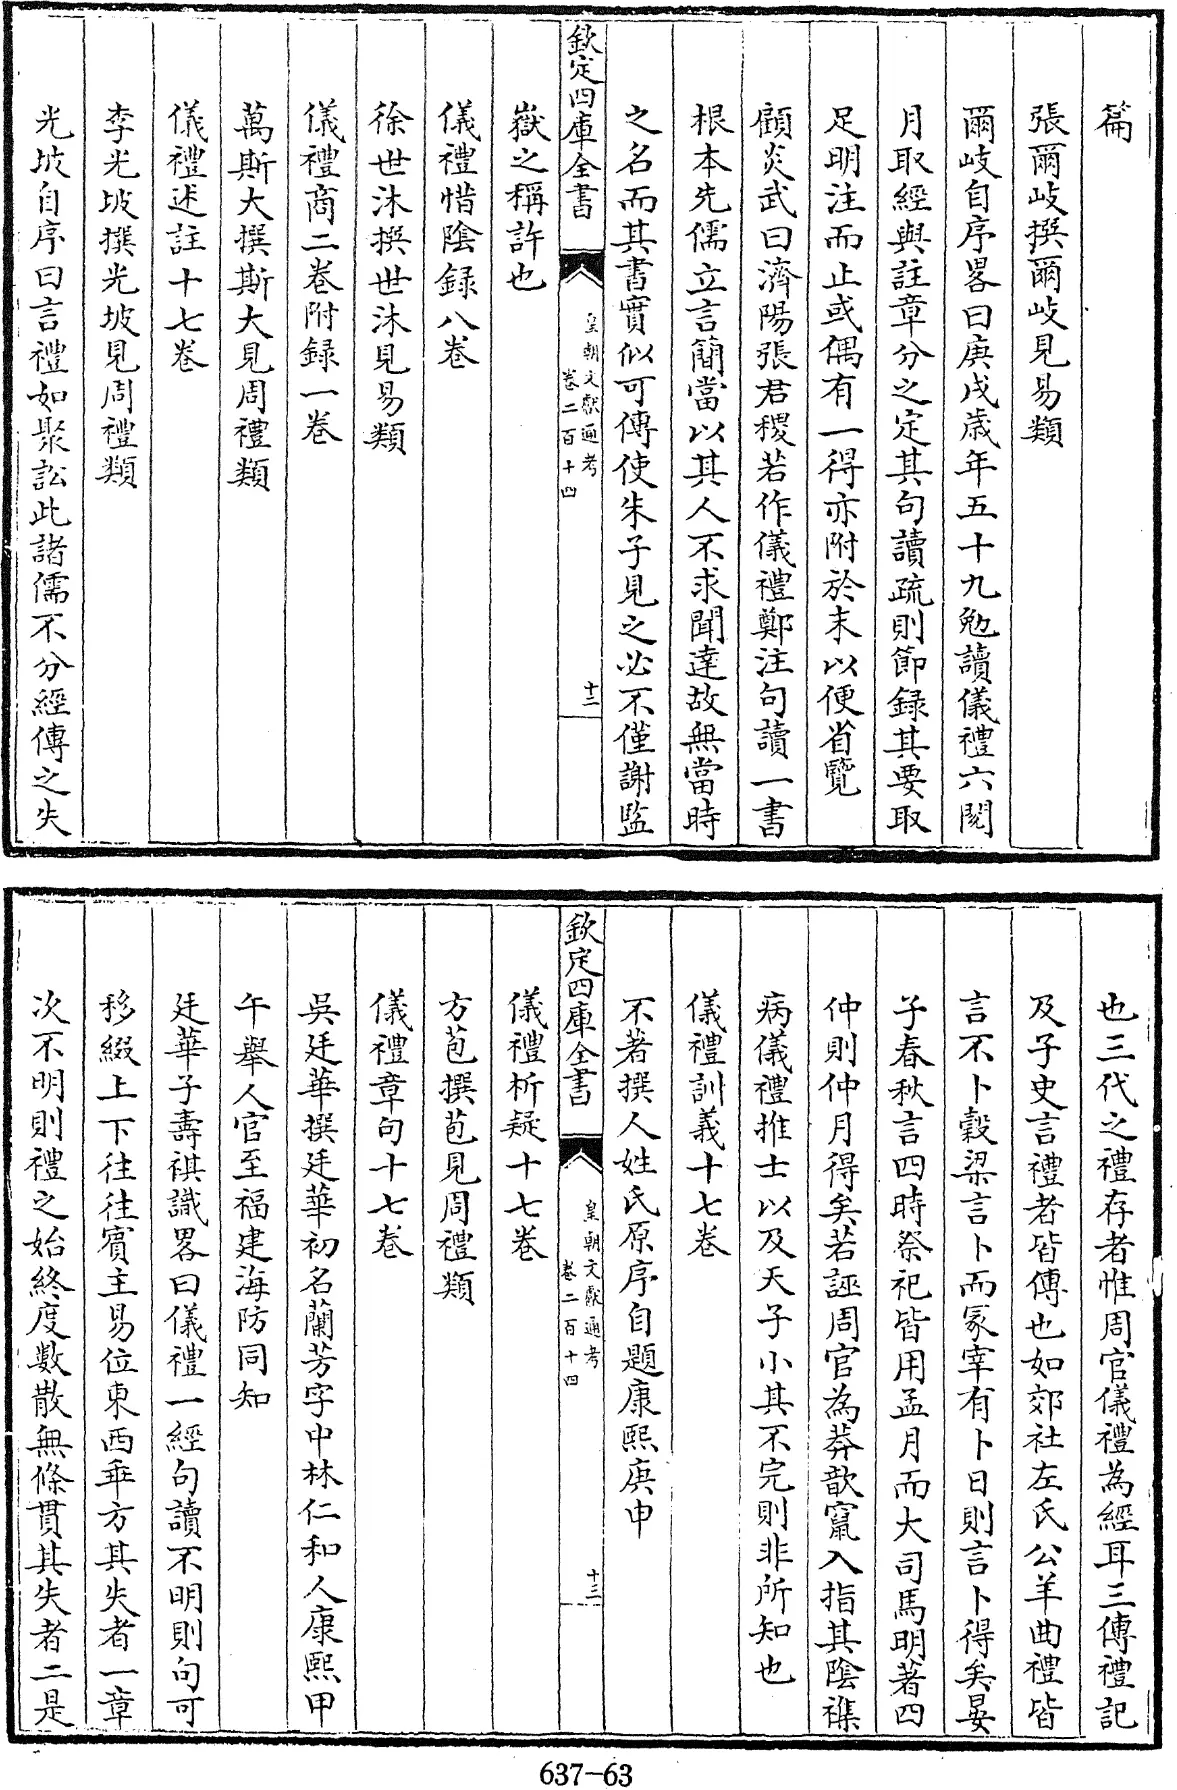 篇
張爾岐撰爾岐見易類
爾岐自序畧曰庚戌歳年五十九勉讀儀禮六閱
月取經與註章分之定其句讀疏則節録其要取
足明注而止或偶有一得亦附於末以便省覽
顧炎武曰濟陽張君稷若作儀禮鄭注句讀一書
根本先儒立言簡當以其人不求聞達故無當時
之名而其書實似可傳使朱子見之必不僅謝監
欽定四庫全書
皇朝文獻通考
卷二百十四
十二
嶽之稱許也
儀禮惜陰録八卷
徐世沐撰世沐見易類
儀禮商二卷附録一卷
萬斯大撰斯大見周禮類
儀禮述註十七卷
李光坡撰光坡見周禮類
光坡自序曰言禮如聚訟此諸儒不分經傳之失
也三代之禮存者惟周官儀禮為經耳三傳禮記
及子史言禮者皆傳也如郊社左氏公羊曲禮皆
言不卜榖梁言卜而冢宰有卜日則言卜得矣晏
子春秋言四時祭祀皆用孟月而大司馬明著四
仲則仲月得矣若誣周官為莽歆竄入指其陰襍
病儀禮推士以及天子小其不完則非所知也
儀禮訓義十七卷
不著撰人姓氏原序自題康熙庚申
欽定四庫全書
皇朝文獻通考
卷二百十四
十三
儀禮析疑十七卷
方苞撰苞見周禮類
儀禮章句十七卷
吳廷華撰廷華初名蘭芳字中林仁和人康熙甲
午舉人官至福建海防同知
廷華子壽祺識畧曰儀禮一經句讀不明則句可
移綴上下往往賓主易位東西乖方其失者一章
次不明則禮之始終度數散無條貫其失者二是
637-63